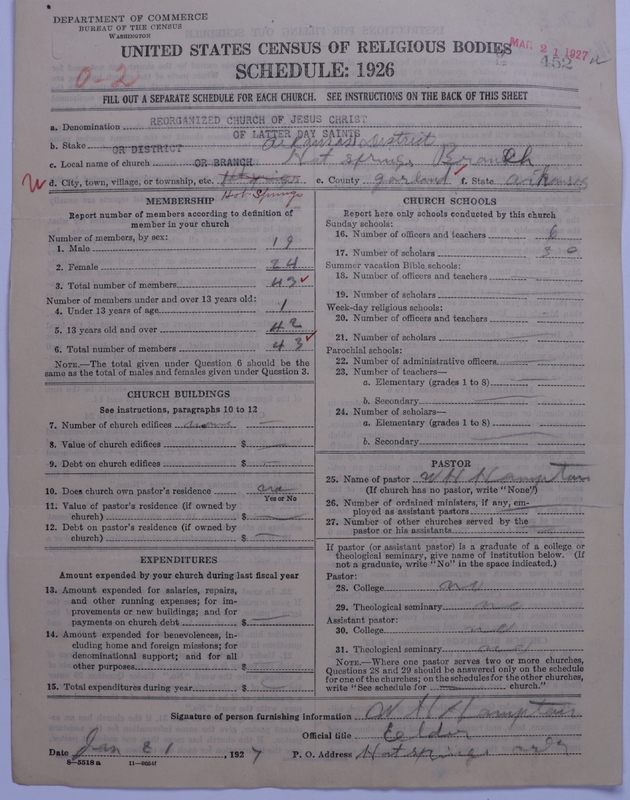 DEPARTMENT OF COMMERCE
BUREAU OF THE CENSUS
WASHINGTON
UNITED STATES CENSUS OF RELIGIOUS BODIES
MAR 21 1927
452
SCHEDULE: 1926
0-2
FILL OUT A SEPARATE SCHEDULE FOR EACH CHURCH. SEE INSTRUCTIONS ON THE BACK OF THIS SHEET
a. Denomination REORGANIZED CHURCH OF JESUS CHRIST
OF LATTER DAY SAINTS
b. Stake OR DISTRICT Arkansas District
c. Local name of church OR BRANCH Hot Springs Branch
d. City, town, village, or township, etc. Hot Springs e. County Garland f. State Arkansas
MEMBERSHIP
Report number of members according to definition of
member in your church
Number of members, by sex:
1. Male 19
2. Female 24
3. Total number of members 43
Number of members under and over 13 years old:
4. Under 13 years of age 1
5. 13 years old and over 42
6. Total number of members 43
NOTE.—The total given under Question 6 should be the
same as the total of males and females given under Question 3.
CHURCH BUILDINGS
See instructions, paragraphs 10 to 12
7. Number of church edifices
8. Value of church edifices $
9. Debt on church edifices $
10. Does church own pastor's residence
Yes or No
11. Value of pastor's residence (if owned by
church) $
12. Debt on pastor's residence (if owned by
church) $
EXPENDITURES
Amount expended by your church during last fiscal year
13. Amount expended for salaries, repairs,
and other running expenses; for im-
provements or new buildings; and for
payments on church debt $
14. Amount expended for benevolences, in-
cluding home and foreign missions; for
denominational support; and for all
other purposes $
15. Total expenditures during year $
CHURCH SCHOOLS
Report here only schools conducted by this church
Sunday schools:
16. Number of officers and teachers 6
17. Number of scholars 30
Summer vacation Bible schools:
18. Number of officers and teachers
19. Number of scholars
Week-day religious schools:
20. Number of officers and teachers
21. Number of scholars
Parochial schools:
22. Number of administrative officers
23. Number of teachers—
a. Elementary (grades 1 to 8)
b. Secondary
24. Number of scholars—
a. Elementary (grades 1 to 8)
b. Secondary
PASTOR
25. Name of pastor W H Hampton
(If church has no pastor, write "None")
26. Number of ordained ministers, if any, em-
ployed as assistant pastors
27. Number of other churches served by the
pastor or his assistants
If pastor (or assistant pastor) is a graduate of a college or
theological seminary, give name of institution below. (If
not a graduate, write "No" in the space indicated.)
Pastor:
28. College no
29. Theological seminary no
Assistant pastor:
30. College no
31. Theological seminary no
NOTE.—Where one pastor serves two or more churches,
Questions 28 and 29 should be answered only on the schedule
for one of the churches; on the schedules for the other churches,
write "See schedule for church."
Signature of person furnishing information W H Hampton
Official title Eldor
Date Jan 31, 1927 P. O. Address Hot springs ark
8-5518a 11-9054f